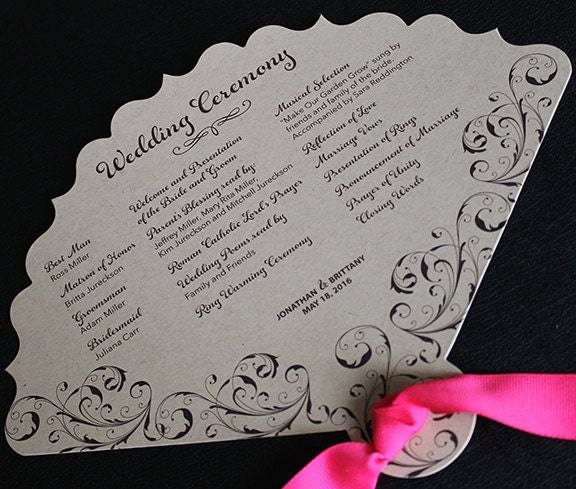 Wedding Ceremony
Best Man
Ross Miller
Matron of Honor
Britta Jureckson
Groomsman
Adam Miller
Bridesmaid
Juliana Carr
Welcome and Presentation
of the Bride and Groom
Parent's Blessing read by:
Jeffrey Miller, Mary Rita Miller,
Kim Jureckson and Mitchell Jureckson
Roman Catholic Lord's Prayer
Wedding Poems read by
Family and Friends
Ring Warming Ceremony
Musical Selection
"Make Our Garden Grow" sung by
friends and family of the bride.
Accompanied by Sara Reddington
Reflection of Love
Marriage Vows
Presentation of Rings
Pronouncement of Marriage
Prayer of Unity
Closing Words
JONATHAN & BRITTANY
MAY 18, 2016